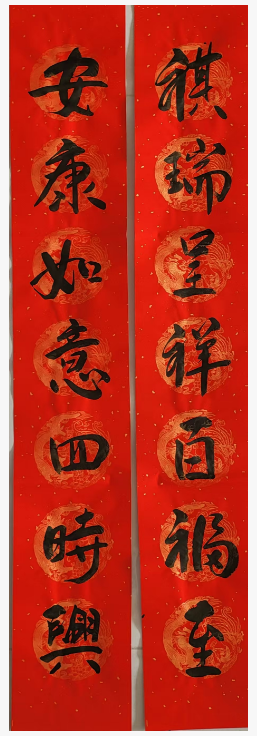 祺瑞呈祥百福至
安康如意四時興